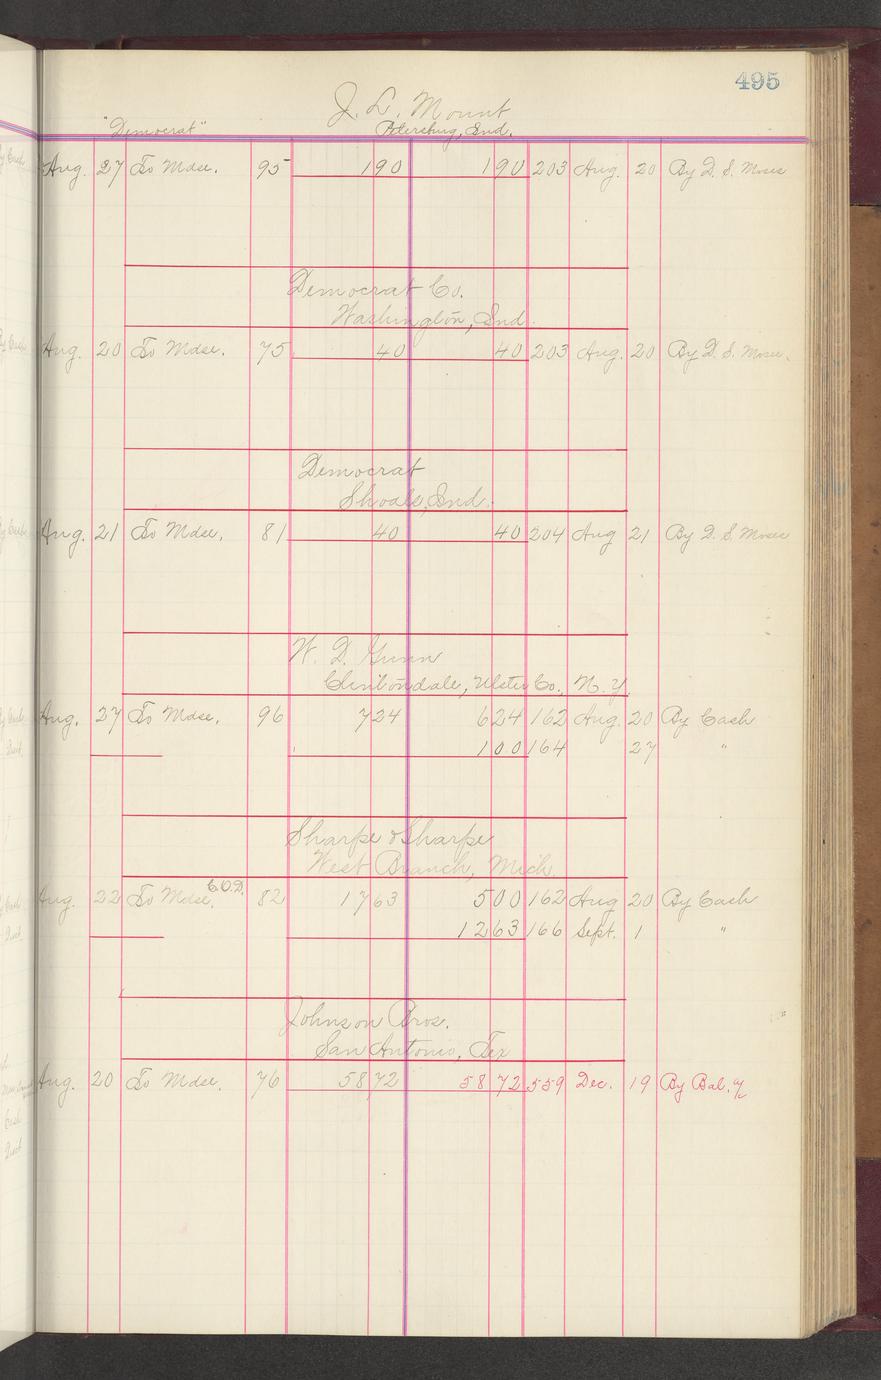 495
J. L. Mount
"Democrat" Petersburg, Ind.
Aug. 27 To Mdse. 95 190 190 203 Aug. 20 By D. S. Moses
Democrat Co.
Washington, Ind.
Aug. 20 To Mdse. 75 40 40 203 Aug. 20 By D. S. Moses.
Democrat
Shoals, Ind.
Aug. 21 To Mdse. 81 40 40 204 Aug 21 By D. S. Moses
W. D. Gunn
Clintondale, Ulster Co., N.Y.
Aug. 27 To Mdse. 96 7 24 6 24 162 Aug. 20 By Cash
1 00 164 27 "
Sharpe & Sharpe
West Branch, Mich.
Aug. 22 To Mdse. C.O.D. 82 17 63 5 00 162 Aug 20 By Cash
12 63 166 Sept. 1 "
Johnson Bros.
San Antonio, Tex
Aug. 20 To Mdse. 76 58 72 58 72 559 Dec. 19 By Bal.